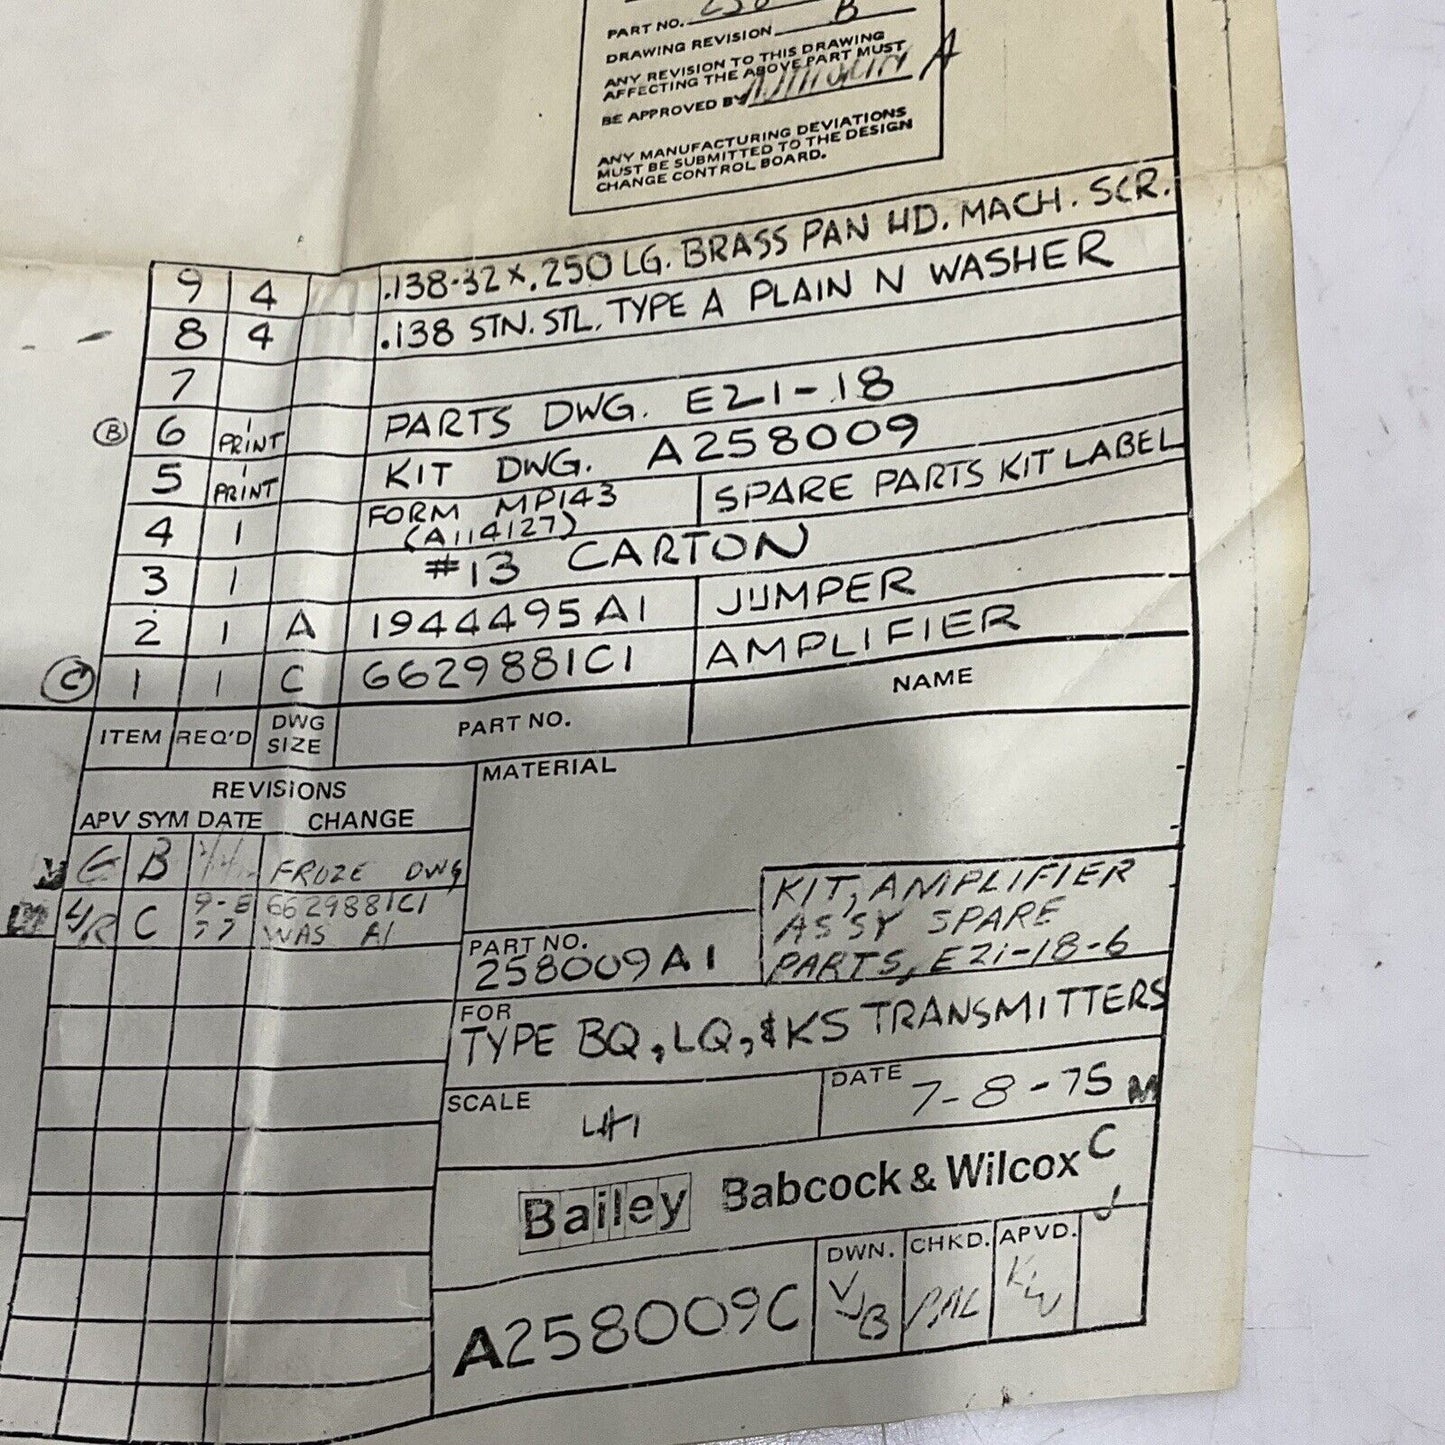 PART NO.
DRAWING REVISION B
ANY REVISION TO THIS DRAWING
AFFECTING THE ABOVE PART MUST
BE APPROVED BY A
ANY MANUFACTURING DEVIATIONS
MUST BE SUBMITTED TO THE DESIGN
CHANGE CONTROL BOARD.
9 4 .138-32 x .250 LG. BRASS PAN HD. MACH. SCR.
8 4 .138 STN. STL. TYPE A PLAIN N WASHER
7
B 6 1 PRINT PARTS DWG. E21-18
5 1 PRINT KIT DWG. A258009
4 1 FORM MP143 (A114127) SPARE PARTS KIT LABEL
3 1 #13 CARTON
2 1 A 1944495A1 JUMPER
C 1 1 C 6629881C1 AMPLIFIER
ITEM REQ'D DWG SIZE PART NO. NAME
REVISIONS
APV SYM DATE CHANGE
B FROZE DWG
C 9-8 77 6629881C1
WAS A1
MATERIAL
PART NO.
258009A1
KIT, AMPLIFIER
ASSY SPARE
PARTS, E21-18-6
FOR
TYPE BQ, LQ, & KS TRANSMITTERS
SCALE
DATE 7-8-75 M
Bailey Babcock & Wilcox C
DWN. CHKD. APVD. J
A258009C VJB PAL